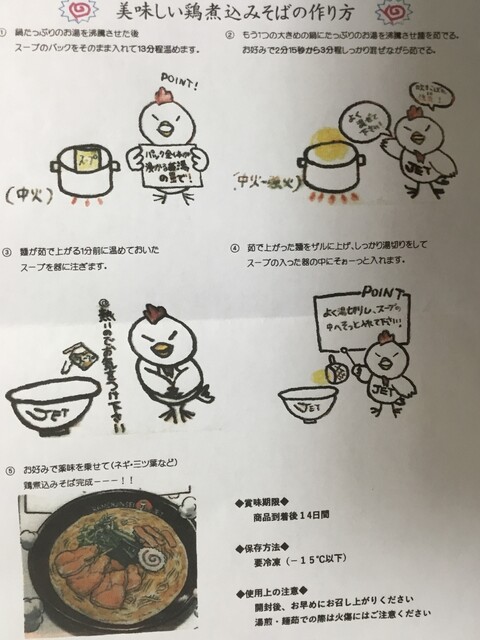 美味しい鶏煮込みそばの作り方
① 鍋たっぷりのお湯を沸騰させた後
スープのパックをそのまま入れて13分程温めます。
POINT!
スープ
パック全体が
浸かる位湯
の量で!
(中火)
② もう1つの大きめの鍋にたっぷりのお湯を沸騰させ麺を茹でる。
お好みで2分15秒から3分程しっかり混ぜながら茹でる。
よく混ぜて
下さい!
JET
(中火~強火)
③ 麺が茹で上がる1分前に温めておいた
スープを器に注ぎます。
熱いのでお気をつけ下さい
JET
④ 茹で上がった麺をザルに上げ、しっかり湯切りをして
スープの入った器の中にそぉーっと入れます。
POINT
よく湯切りし、スープの
中へそっと入れて下さい!
JET
JET
⑤ お好みで薬味を乗せて(ネギ・三ツ葉など)
鶏煮込みそば完成ーーー!!
◆賞味期限◆
商品到着後14日間
◆保存方法◆
要冷凍(-15℃以下)
◆使用上の注意◆
開封後、お早めにお召し上がりください
湯煎・麺茹での際は火傷にはご注意ください